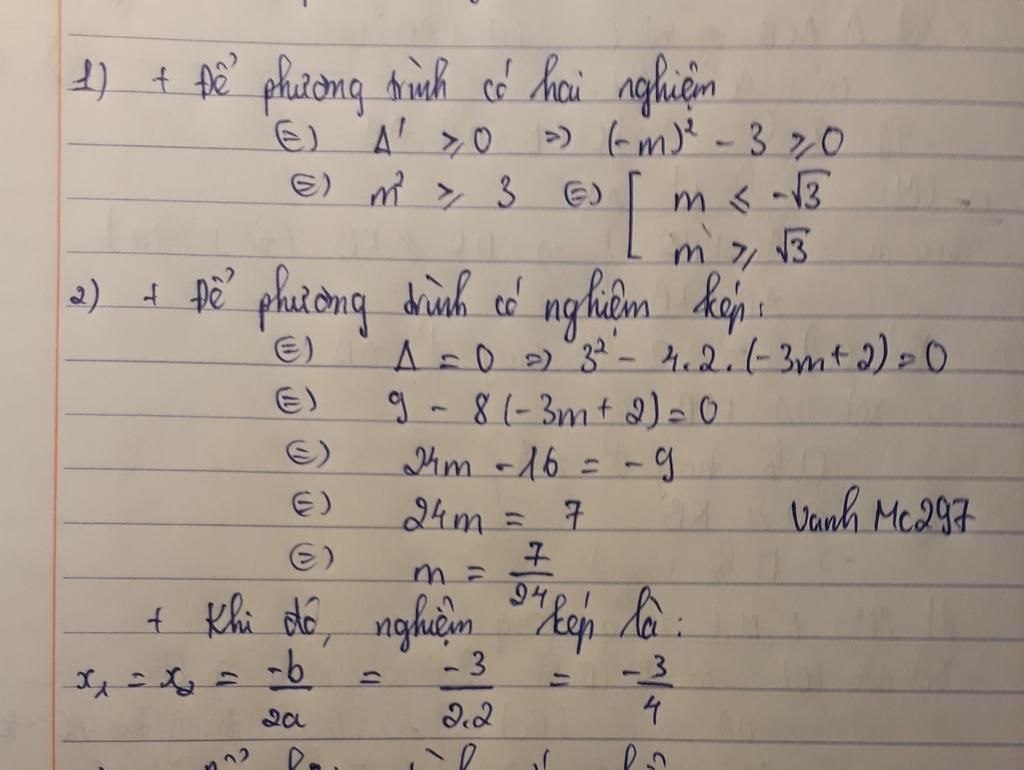 1) + Để phương trình có hai nghiệm
⇔ Δ' ≥ 0 => (-m)² - 3 ≥ 0
⇔ m² ≥ 3 ⇔ [ m ≤ -√3
m ≥ √3
2) + Để phương trình có nghiệm kép:
⇔ Δ = 0 => 3² - 4.2.(-3m+2) = 0
⇔ 9 - 8(-3m+2) = 0
⇔ 24m - 16 = -9
⇔ 24m = 7 Vanh Mc297
⇔ m = 7/24
+ Khi đó, nghiệm kép là:
x₁ = x₂ = -b/2a = -3/2.2 = -3/4